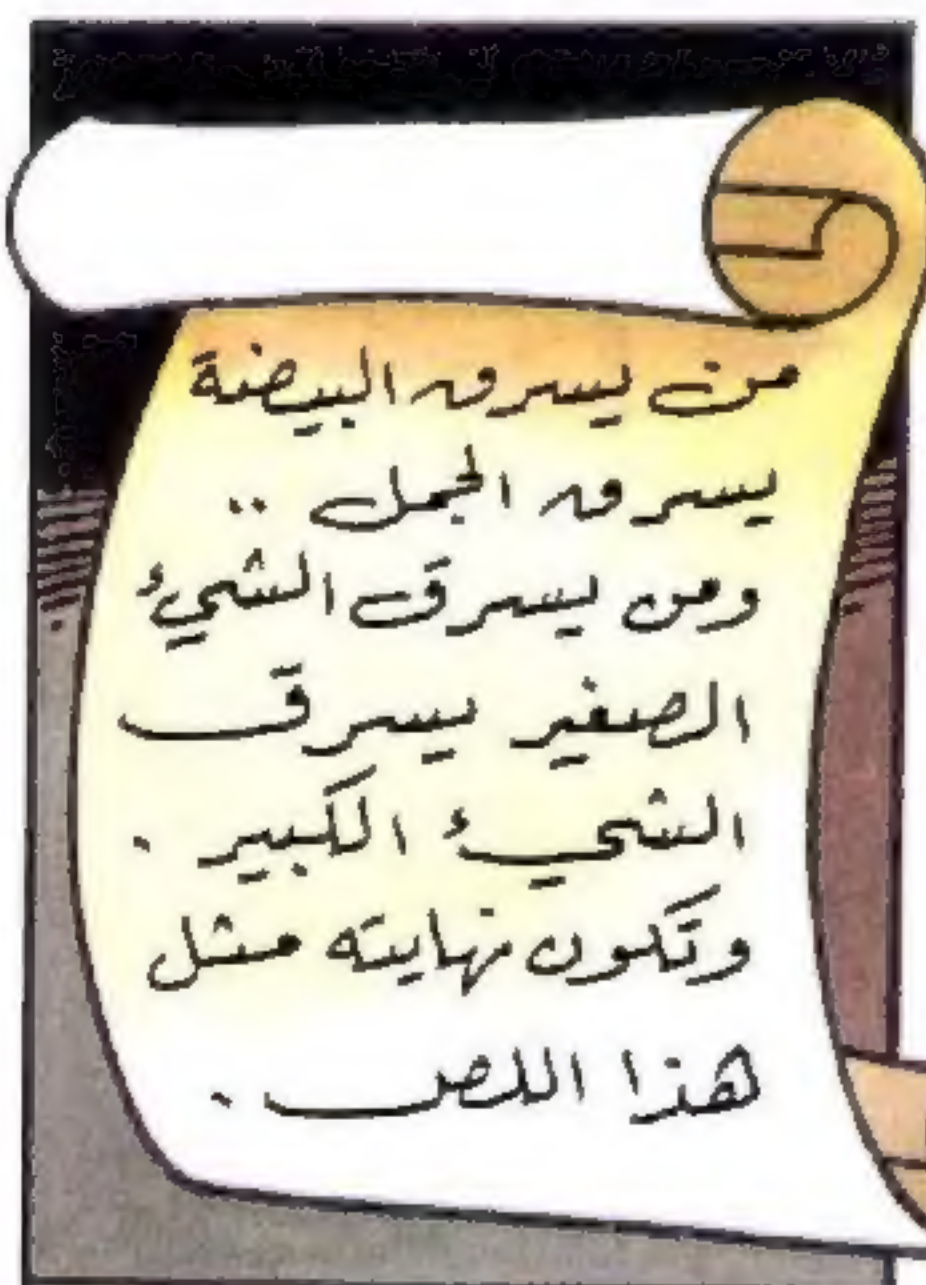 من يسرق البيضة
يسرق الجمل ..
ومن يسرق الشيء
الصغير يسرق
الشيء الكبير .
وتكون نهايته مثل
هذا اللص .